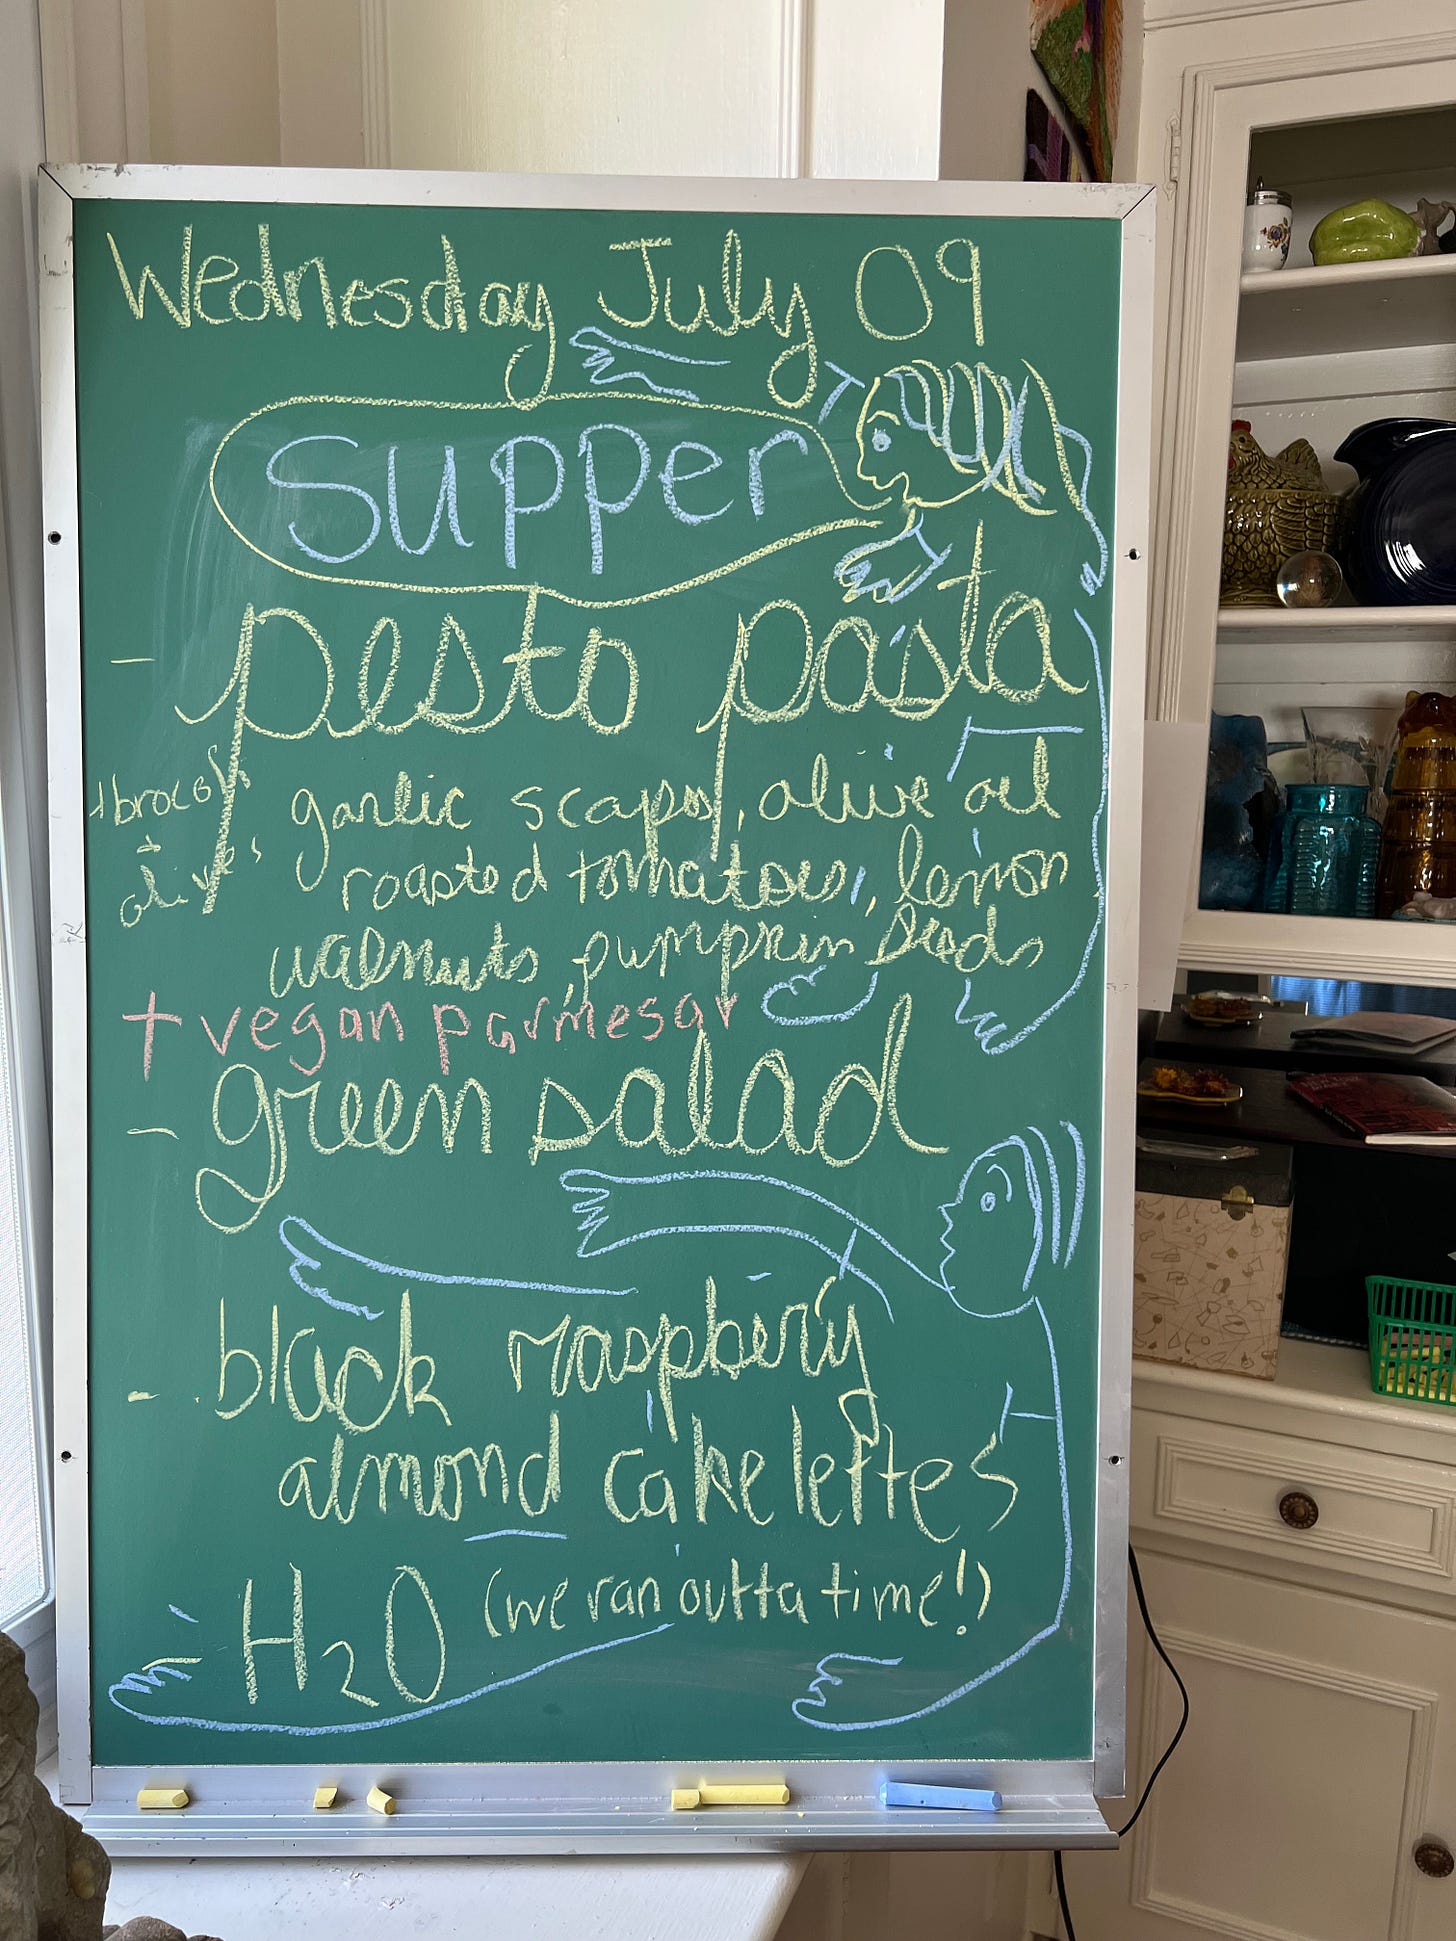 Wednesday July 09
supper
- pesto pasta
+ brocoli + olives
garlic scapes, olive oil
roasted tomatoes, lemon
walnuts, pumpkin seeds
+ vegan parmesan
- green salad
- black raspberry
almond cakelettes
- H2O (we ran outta time!)